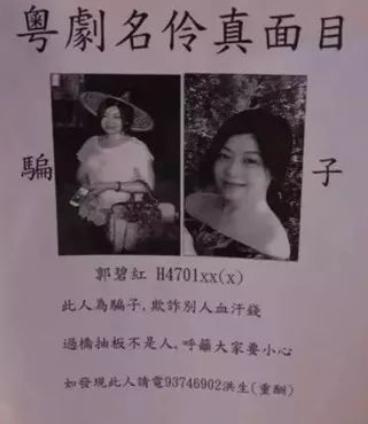 粵劇名伶真面目
騙 子
郭碧紅 H4701xx(x)
此人為騙子,欺詐別人血汗錢
過橋抽板不是人,呼籲大家要小心
如發現此人請電93746902洪生(重酬)